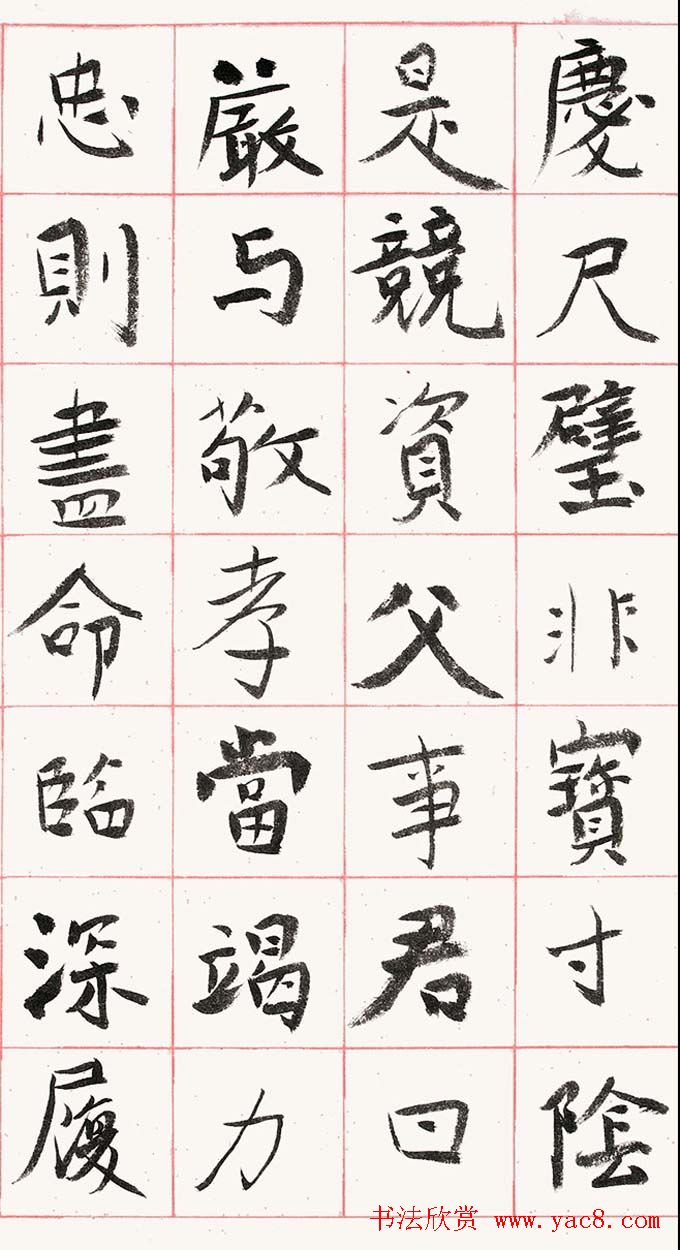 慶尺璧非寶寸陰
是競資父事君曰
嚴与敬孝當竭力
忠則盡命臨深履
书法欣赏 www.yac8.com